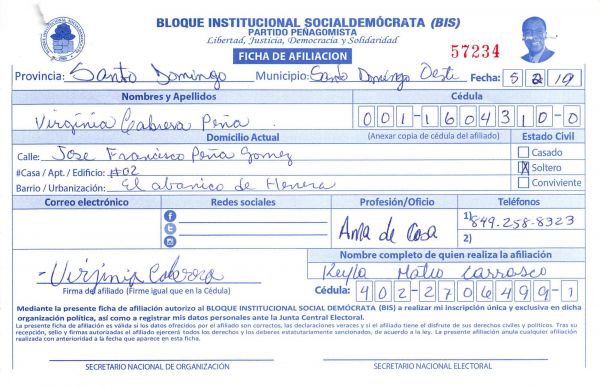 BLOQUE INSTITUCIONAL SOCIALDEMÓCRATA (BIS)
PARTIDO PEÑAGOMISTA
Libertad, Justicia, Democracia y Solidaridad
FICHA DE AFILIACION
57234
Provincia: Santo Domingo Municipio: Santo Domingo Oeste Fecha: 5 2 19
Nombres y Apellidos Cédula
Virginia Cabrera Peña 001-1604310-0
Domicilio Actual (Anexar copia de cédula del afiliado) Estado Civil
Calle: Jose Francisco Peña Gomez Casado
#Casa / Apt. / Edificio: #02 X Soltero
Barrio / Urbanización: El abanico de Herrera Conviviente
Correo electrónico Redes sociales Profesión/Oficio Teléfonos
Ama de Casa
1) 849-258-8323
2)
Nombre completo de quien realiza la afiliación
Virginia Cabrera Keyla Mateo Carrasco
Firma del afiliado (Firme igual que en la Cédula) Cédula: 402-2706499-1
Mediante la presente ficha de afiliación autorizo al BLOQUE INSTITUCIONAL SOCIAL DEMÓCRATA (BIS) a realizar mi inscripción única y exclusiva en dicha
organización política, así como a registrar mis datos personales ante la Junta Central Electoral.
La presente ficha de afiliación es válida si los datos ofrecidos por el afiliado son correctos, las declaraciones veraces y si el afiliado tiene el disfrute de sus derechos civiles y políticos. Tras su
recepción, sello y firmas autorizadas el afiliado ejercerá todos los derechos y los deberes estatutariamente sancionados, de acuerdo a la ley. La presente afiliación anula cualquier afiliación
realizada con anterioridad a la fecha que aparece en esta ficha.
SECRETARIO NACIONAL DE ORGANIZACIÓN SECRETARIO NACIONAL ELECTORAL